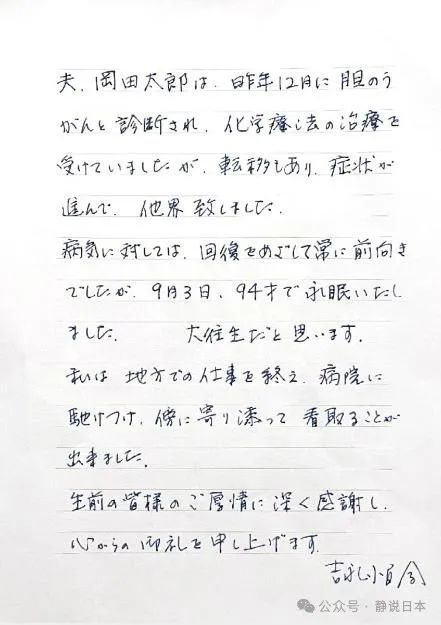 夫、岡田太郎は、昨年12月に胆のう
がんと診断され、化学療法の治療を
受けていましたが、転移もあり、症状が
進んで、他界致しました。
病気に対しては、回復をめざして常に前向き
でしたが、9月3日、94才で永眠いたし
ました。 大往生だと思います。
私は 地方での仕事を終え、病院に
馳けつけ、傍に寄り添って 看取ることが
出来ました。
生前の皆様のご厚情に深く感謝し、
心からの御礼を申し上げます。
吉永小百合
公众号・静说日本